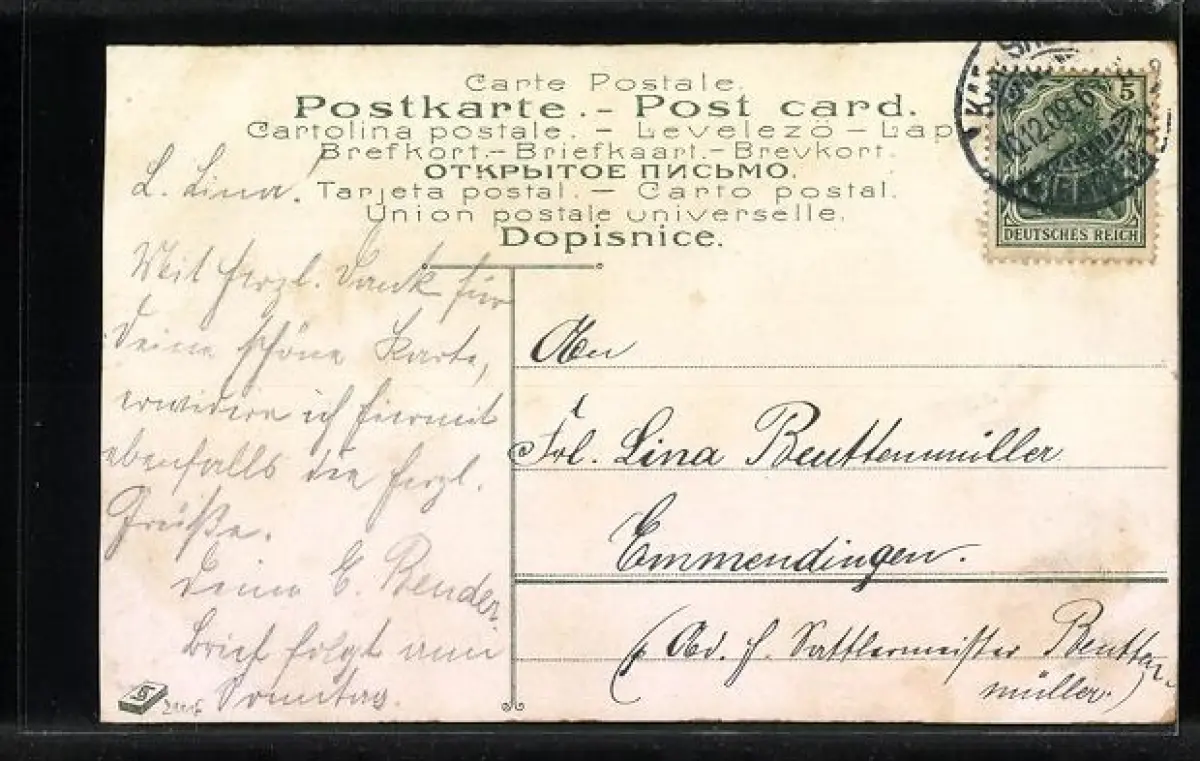 Carte Postale.
Postkarte. - Post card.
Cartolina postale. - Levelezö - Lap
Brefkort. - Briefkaart. - Brevkort.
ОТКРЫТОЕ ПИСЬМО.
Tarjeta postal. - Carto postal.
Union postale universelle.
Dopisnice.
5
10.12.09.6
DEUTSCHES REICH
L. Lina!
Mit herzl. Dank für
Deine schöne Karte,
erwidere ich hiermit
ebenfalls die herzl.
Grüße.
Deine E. Bender
Brief folgt am
Sonntag.
An
Frl. Lina Beuttenmüller
Emmendingen.
(Ad. H. Sattlermeister Beutten-
müller.)